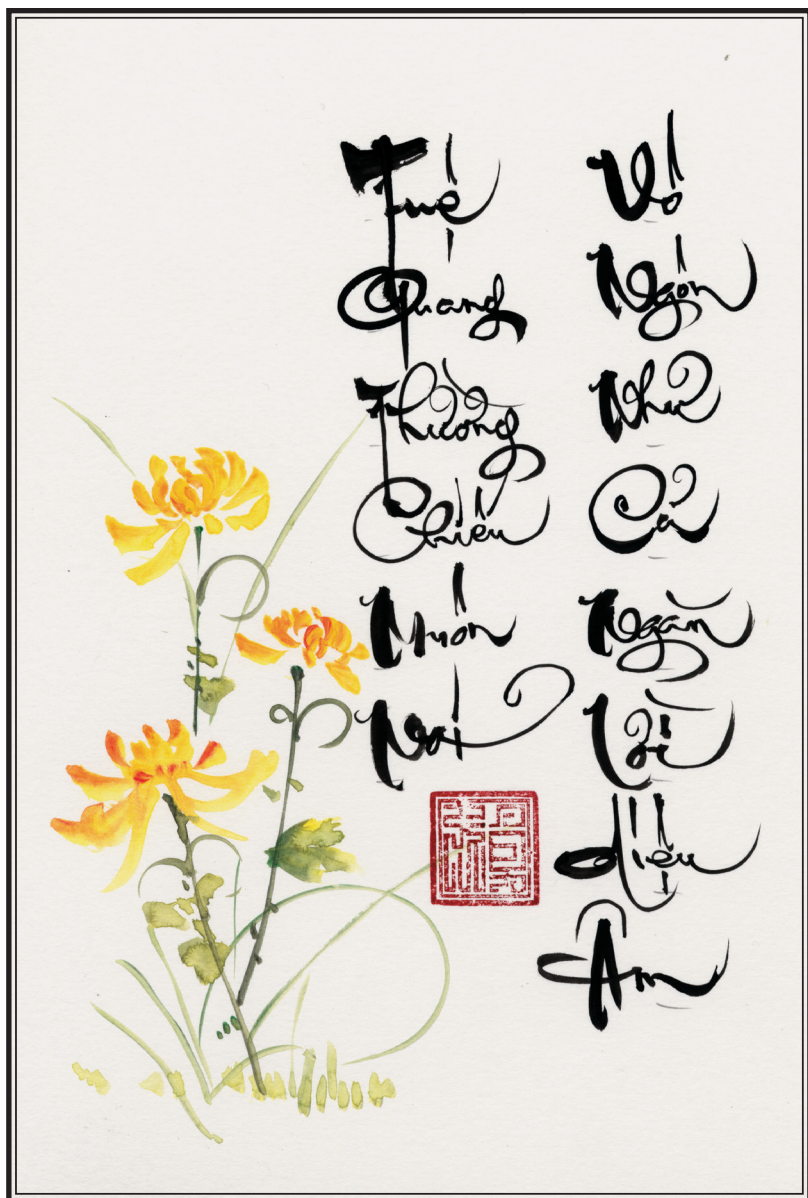 Tuệ
Quang
Thường
Chiếu
Muôn
Nơi
Vô
Ngôn
Như
Cả
Ngàn
Lời
diệu
Âm